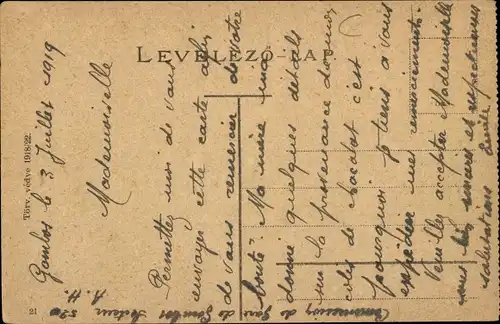 LEVELEZŐ-LAP
Törv. védve 1918/22.
21
Gombos le 3 Juillet 1919
Mademoiselle
Permettez moi de vous
envoyer cette carte afin
de vous remercier de votre
bonté. Ma mère m'a
donné quelques détails
sur la provenance du
colis de chocolat c'est
pourquoi je tiens à vous
expédier mes remerciements.
Veuillez accepter Mademoiselle
mes sincères et respectueuses
salutations
Emile
A. H.
de Gare de Gombos Secteur 520